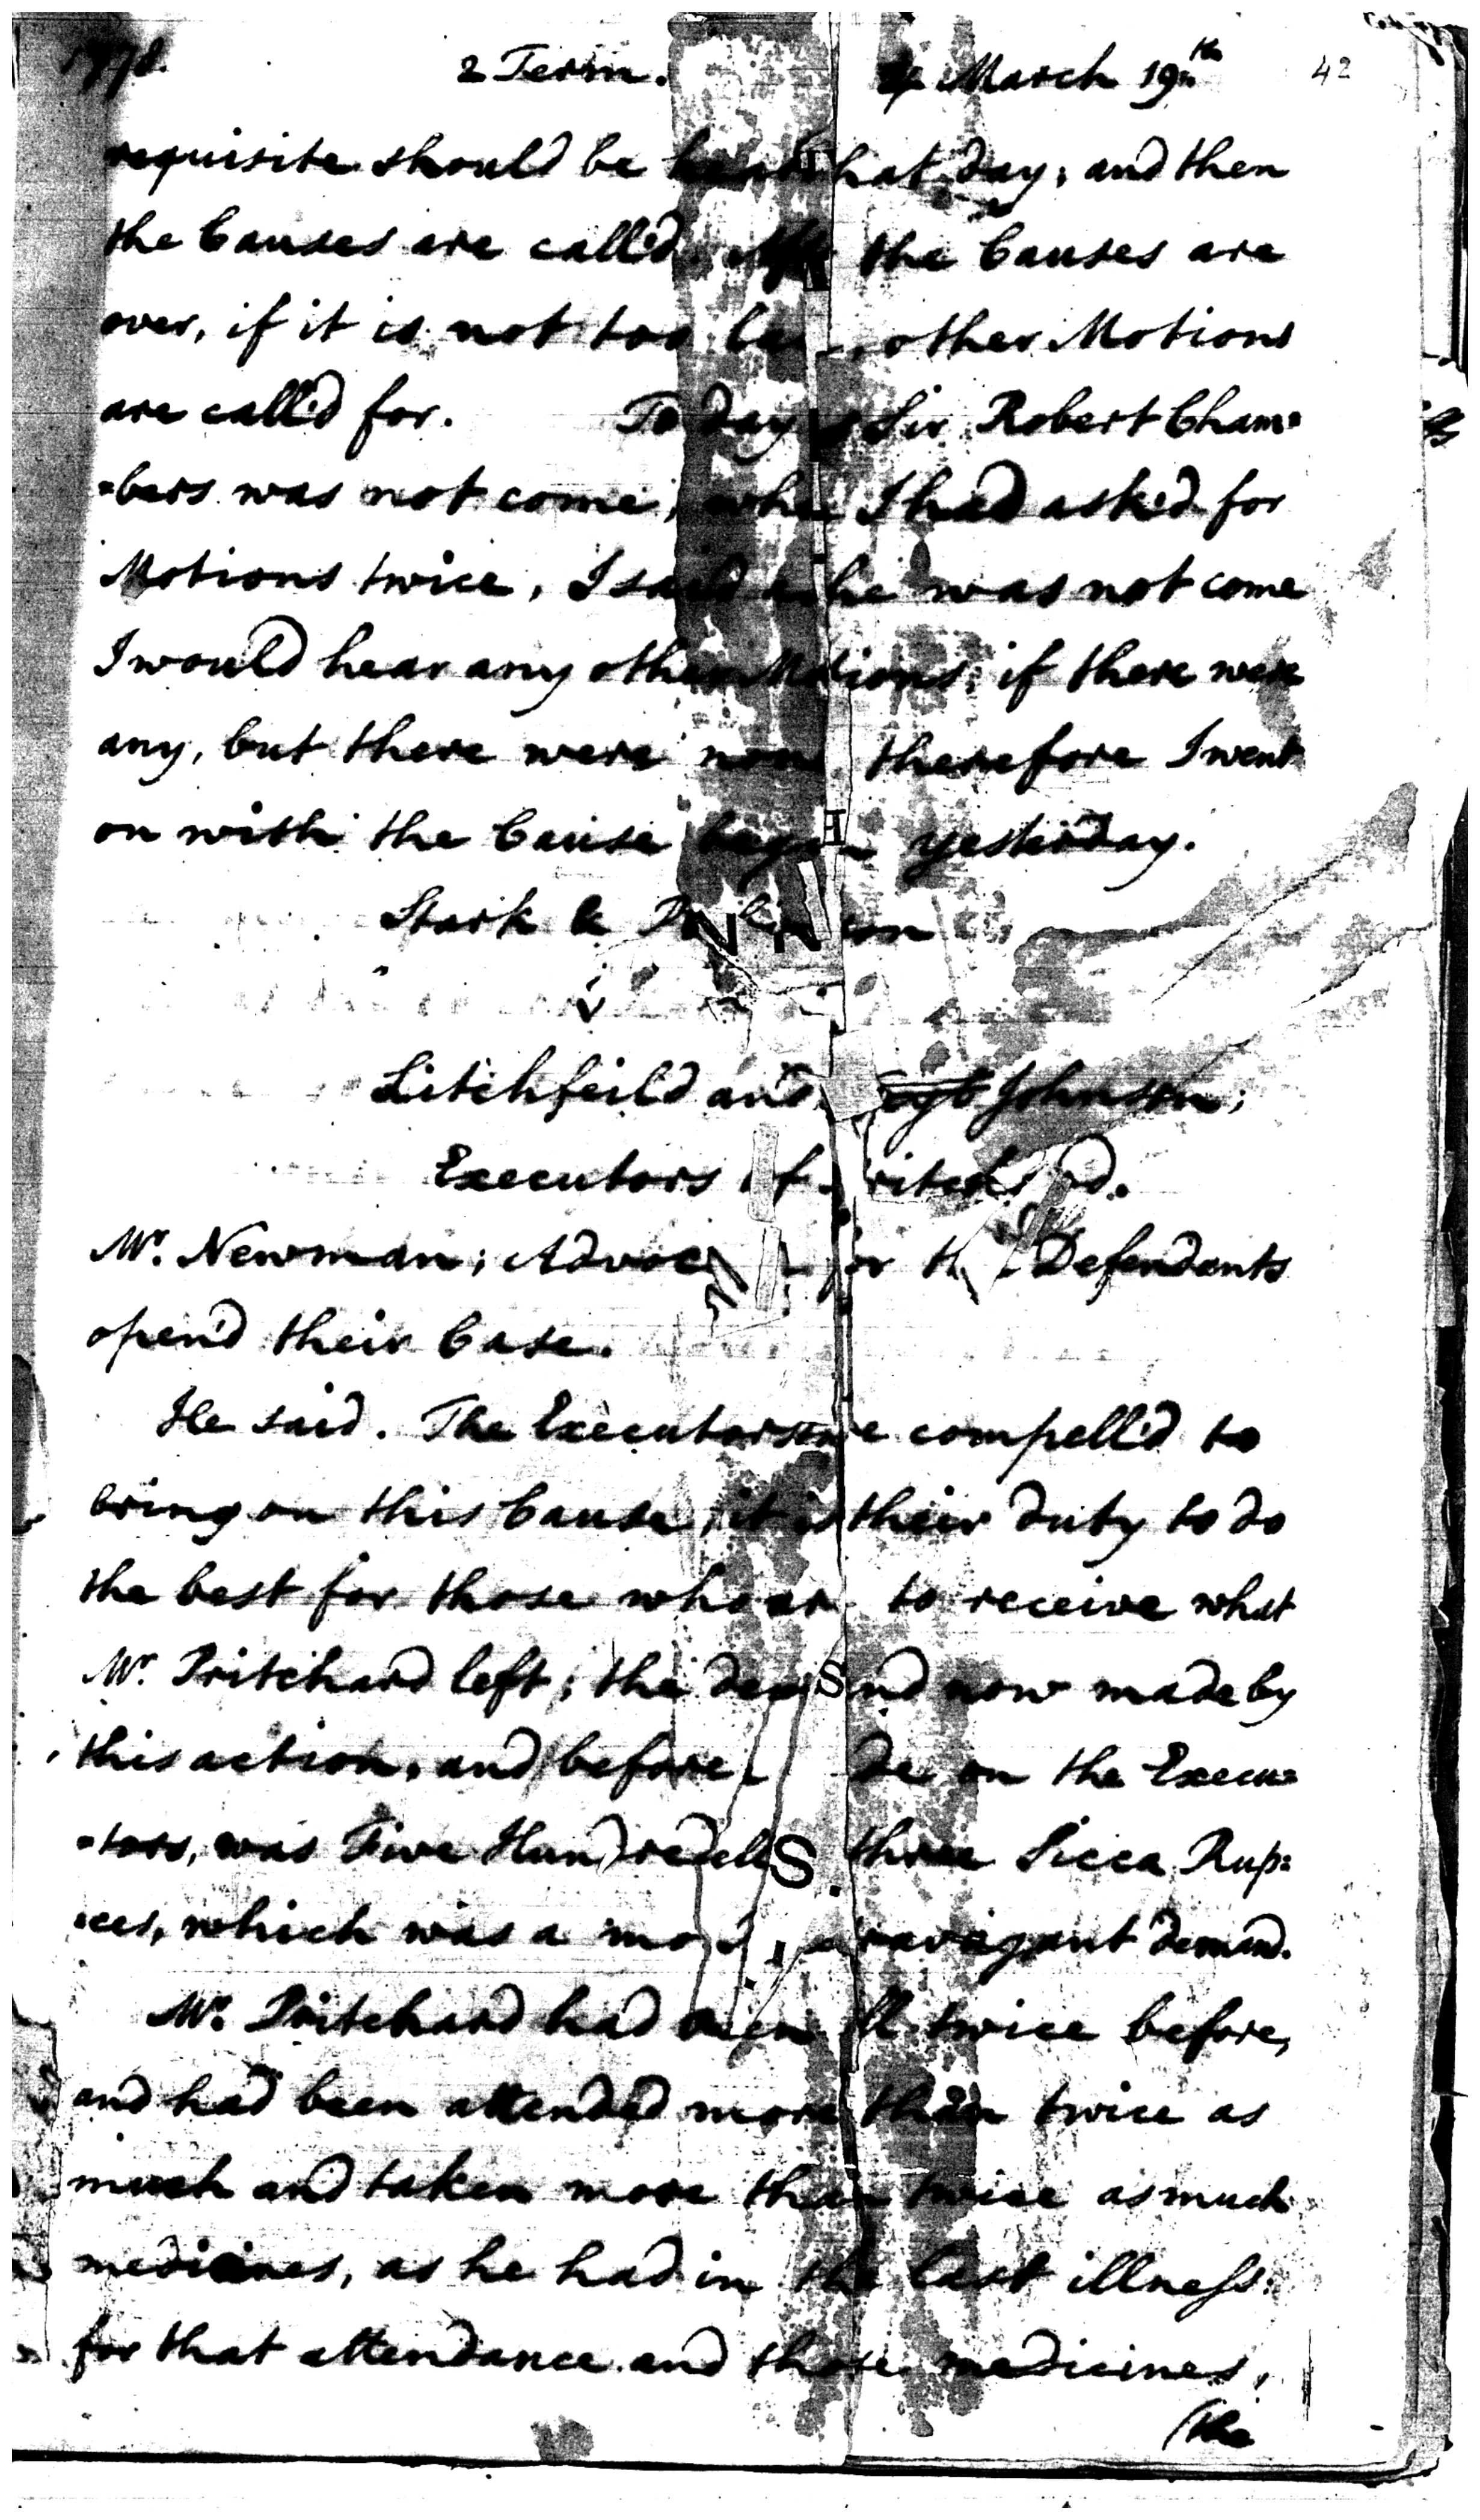 1778. 2 Term. March 19th 42
requisite should be heard that day, and then
the Causes are call'd. After the Causes are
over, if it is not too late, other Motions
are call'd for. To day Sir Robert Cham=
=bers was not come, when I had ask'd for
Motions twice, I said as he was not come
I would hear any other Motions, if there were
any, but there were none therefore I went
on with the Cause began yesterday.
Stark &
v
Litchfeild and Johnson;
Executors of Pritchard.
Mr. Newman; Advocate for the Defendants
open'd their Case.
He said. The Executors are compell'd to
bring on this Cause, it is their duty to do
the best for those who are to receive what
Mr. Pritchard left; the demand now made by
this action, and before made on the Execu=
=tors, was Five Hundred & three Sicca Rup=
=ees, which was a most extravagant demand.
Mr. Pritchard had been ill twice before,
and had been attended more than twice as
much and taken more than twice as much
medicines, as he had in the last illness:
for that attendance and those medicines,
the